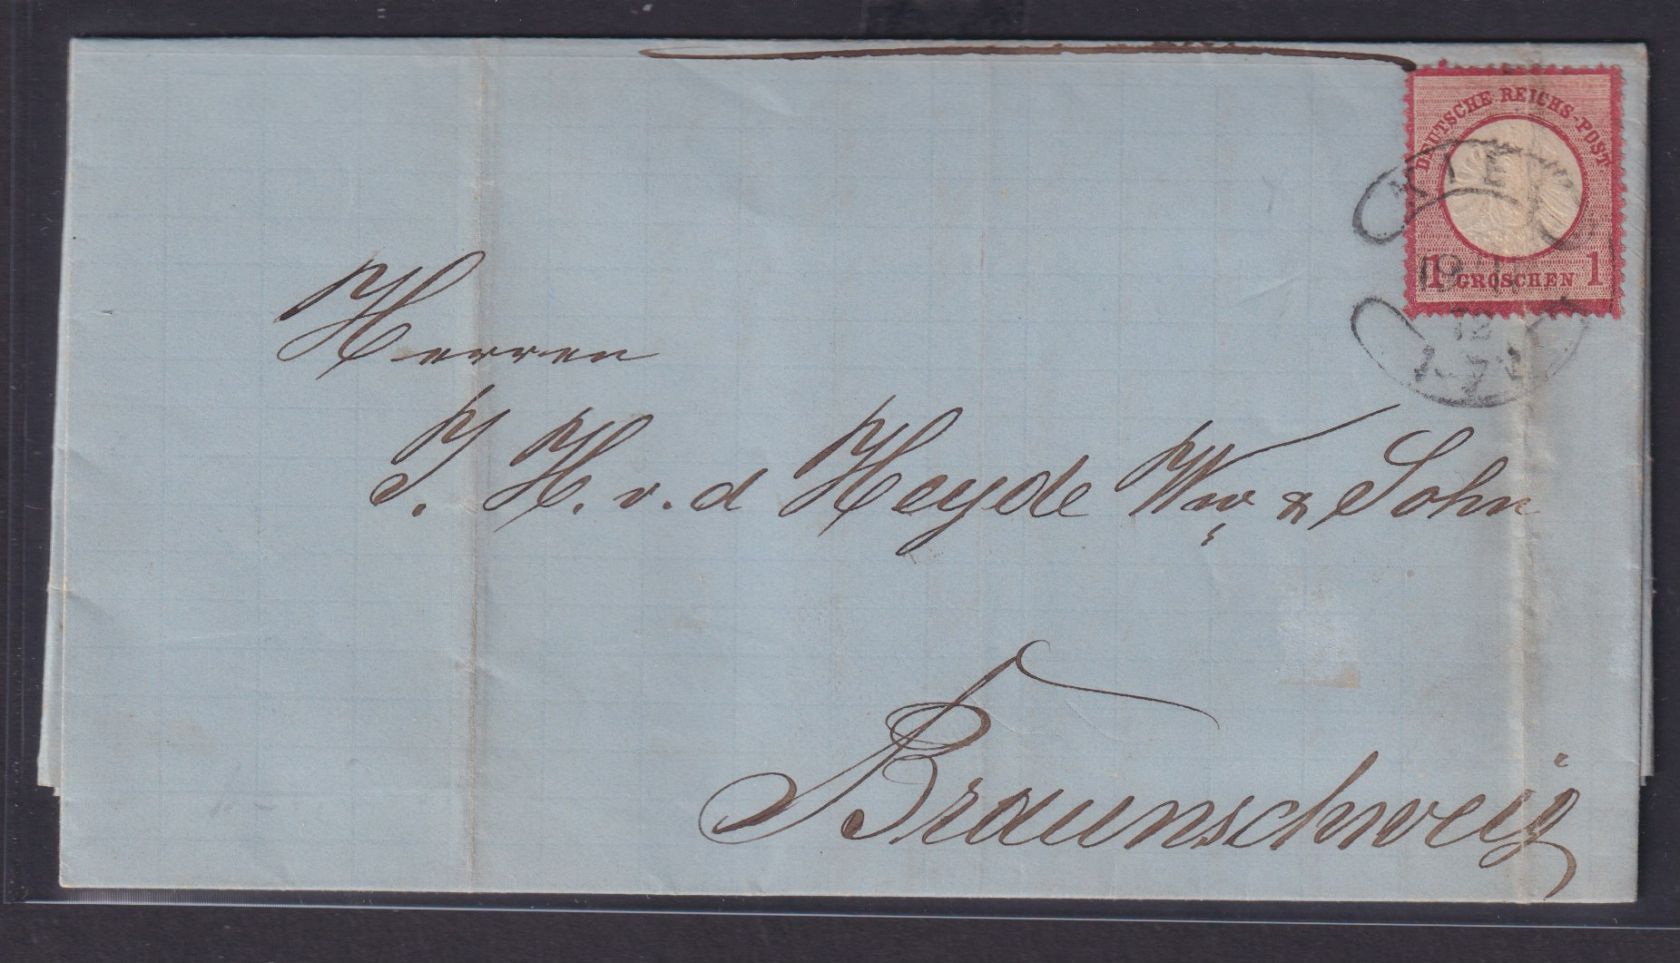 DEUTSCHE REICHS-POST
1 GROSCHEN 1
19
72
Herren
J. H. v. d Heyde Wwe & Sohn
Braunschweig